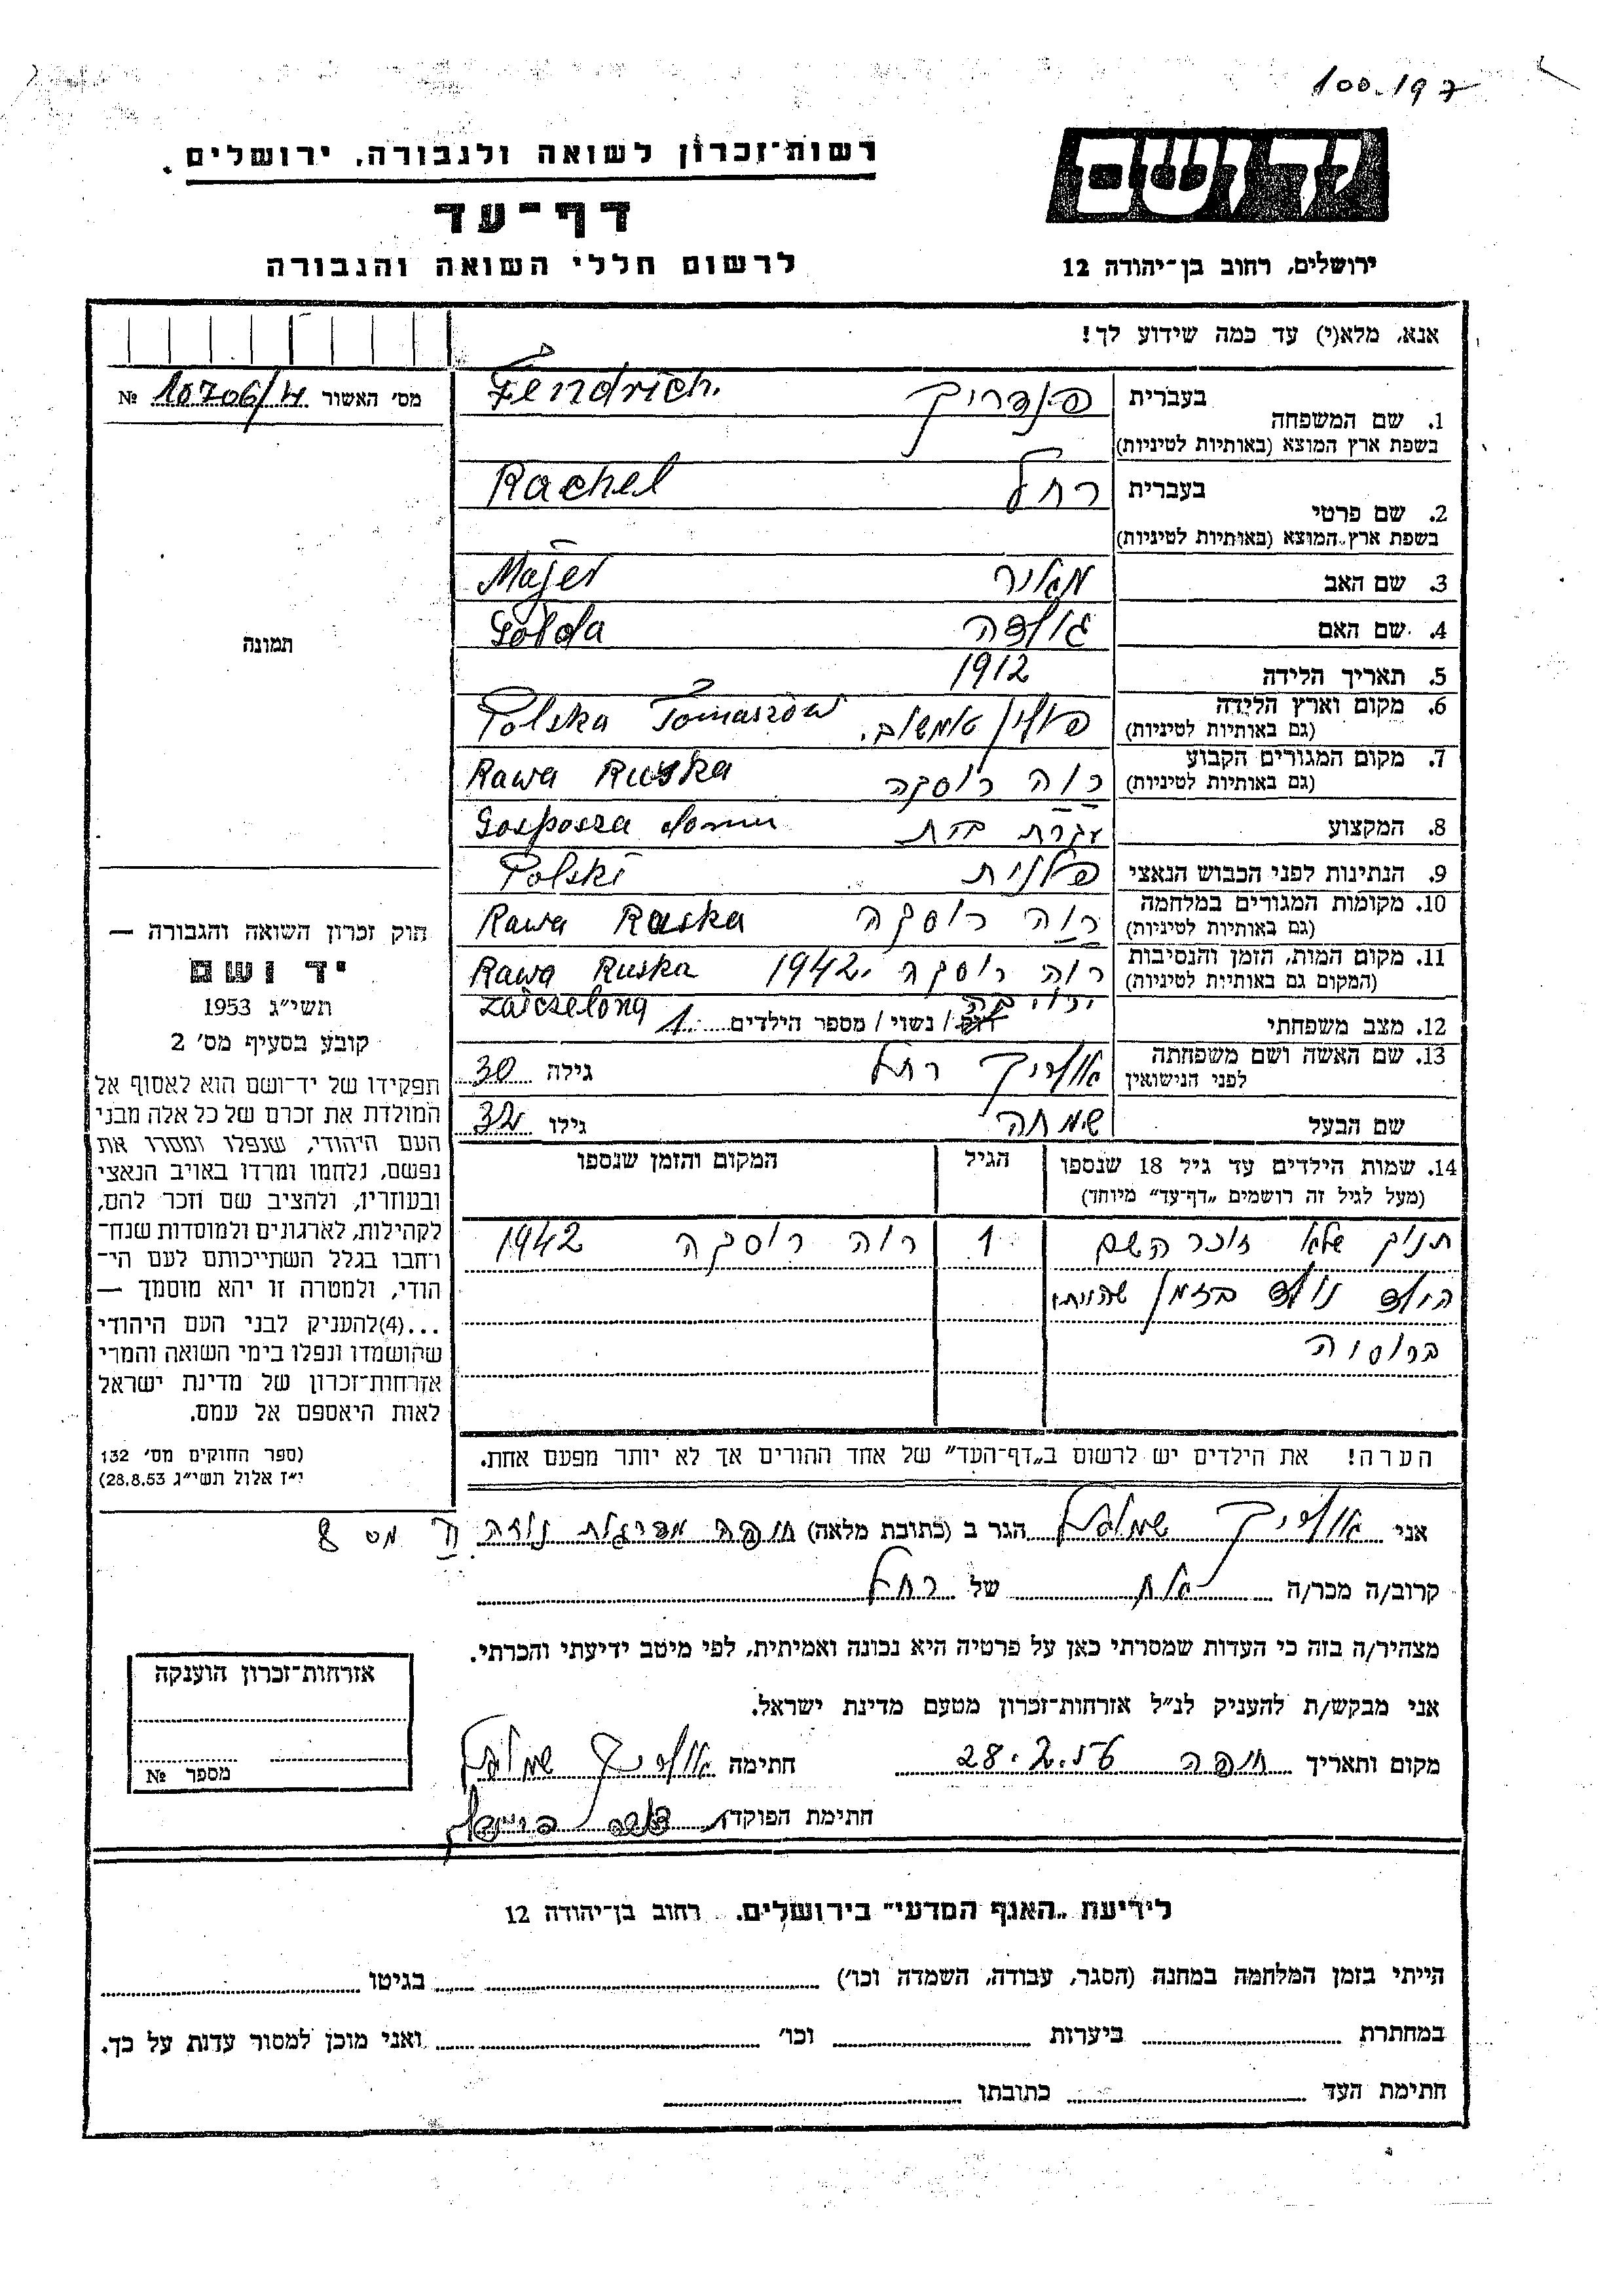 100.197
רשות־זכרון לשואה ולגבורה, ירושלים.
יד ושם
דף־עד
לרשום חללי השואה והגבורה
ירושלים, רחוב בן־יהודה 12
אנא, מלא(י) עד כמה שידוע לך!
מס׳ האשור № 10706/
1. שם המשפחה בעברית פנדריך Fendrich.
בשפת ארץ המוצא (באותיות לטיניות)
2. שם פרטי בעברית רחל Rachel
בשפת ארץ המוצא (באותיות לטיניות)
3. שם האב מאיר Majer
4. שם האם גולדה Golda
5. תאריך הלידה 1912
6. מקום וארץ הלידה פולין טומשוב. Polska Tomaszów
(גם באותיות לטיניות)
7. מקום המגורים הקבוע רוה רוסקה Rawa Ruska
(גם באותיות לטיניות)
8. המקצוע עקרת בית Gosposza domu
9. הנתינות לפני הכבוש הנאצי פולנית Polski
10. מקומות המגורים במלחמה רוה רוסקה Rawa Ruska
(גם באותיות לטיניות)
11. מקום המות, הזמן והנסיבות רוה רוסקה 1942. Rawa Ruska
(המקום גם באותיות לטיניות)
12. מצב משפחתי / נשוי / מספר הילדים 1
13. שם האשה ושם משפחתה רחל גילה 30
לפני הנישואין
שם הבעל שמחה גילו 32
14. שמות הילדים עד גיל 18 שנספו הגיל המקום והזמן שנספו
(מעל לגיל זה רושמים „דף־עד” מיוחד)
תנוק שלא זוכר השם 1 רוה רוסקה 1942
הילד נולד בזמן שהייתי
ברוסיה
הערה! את הילדים יש לרשום ב„דף־העד” של אחד ההורים אך לא יותר מפעם אחת.
תמונה
חוק זכרון השואה והגבורה —
יד ושם
תשי״ג 1953
קובע בסעיף מס׳ 2
תפקידו של יד־ושם הוא לאסוף אל
המולדת את זכרם של כל אלה מבני
העם היהודי, שנפלו ומסרו את
נפשם, נלחמו ומרדו באויב הנאצי
ובעוזריו, ולהציב שם וזכר להם,
לקהילות, לארגונים ולמוסדות שנח־
רבו בגלל השתייכותם לעם הי־
הודי, ולמטרה זו יהא מוסמך —
...(4)להעניק לבני העם היהודי
שהושמדו ונפלו בימי השואה והמרי
אזרחות־זכרון של מדינת ישראל
לאות היאספם אל עמם.
(ספר החוקים מס׳ 132
י״ז אלול תשי״ג 28.8.53)
אני שמואל הגר ב (כתובת מלאה) חיפה מס 8
קרוב/ה מכר/ה אח של רחל
מצהיר/ה בזה כי העדות שמסרתי כאן על פרטיה היא נכונה ואמיתית, לפי מיטב ידיעתי והכרתי.
אני מבקש/ת להעניק לנ״ל אזרחות־זכרון מטעם מדינת ישראל.
מקום ותאריך חיפה 28.2.57 חתימה שמואל
חתימת הפוקד
אזרחות־זכרון הוענקה
מספר №
לידיעת „האגף המדעי” בירושלים. רחוב בן־יהודה 12
הייתי בזמן המלחמה במחנה (הסגר, עבודה, השמדה וכו׳) בגיטו
במחתרת ביערות וכו׳ ואני מוכן למסור עדות על כך.
חתימת העד כתובתו